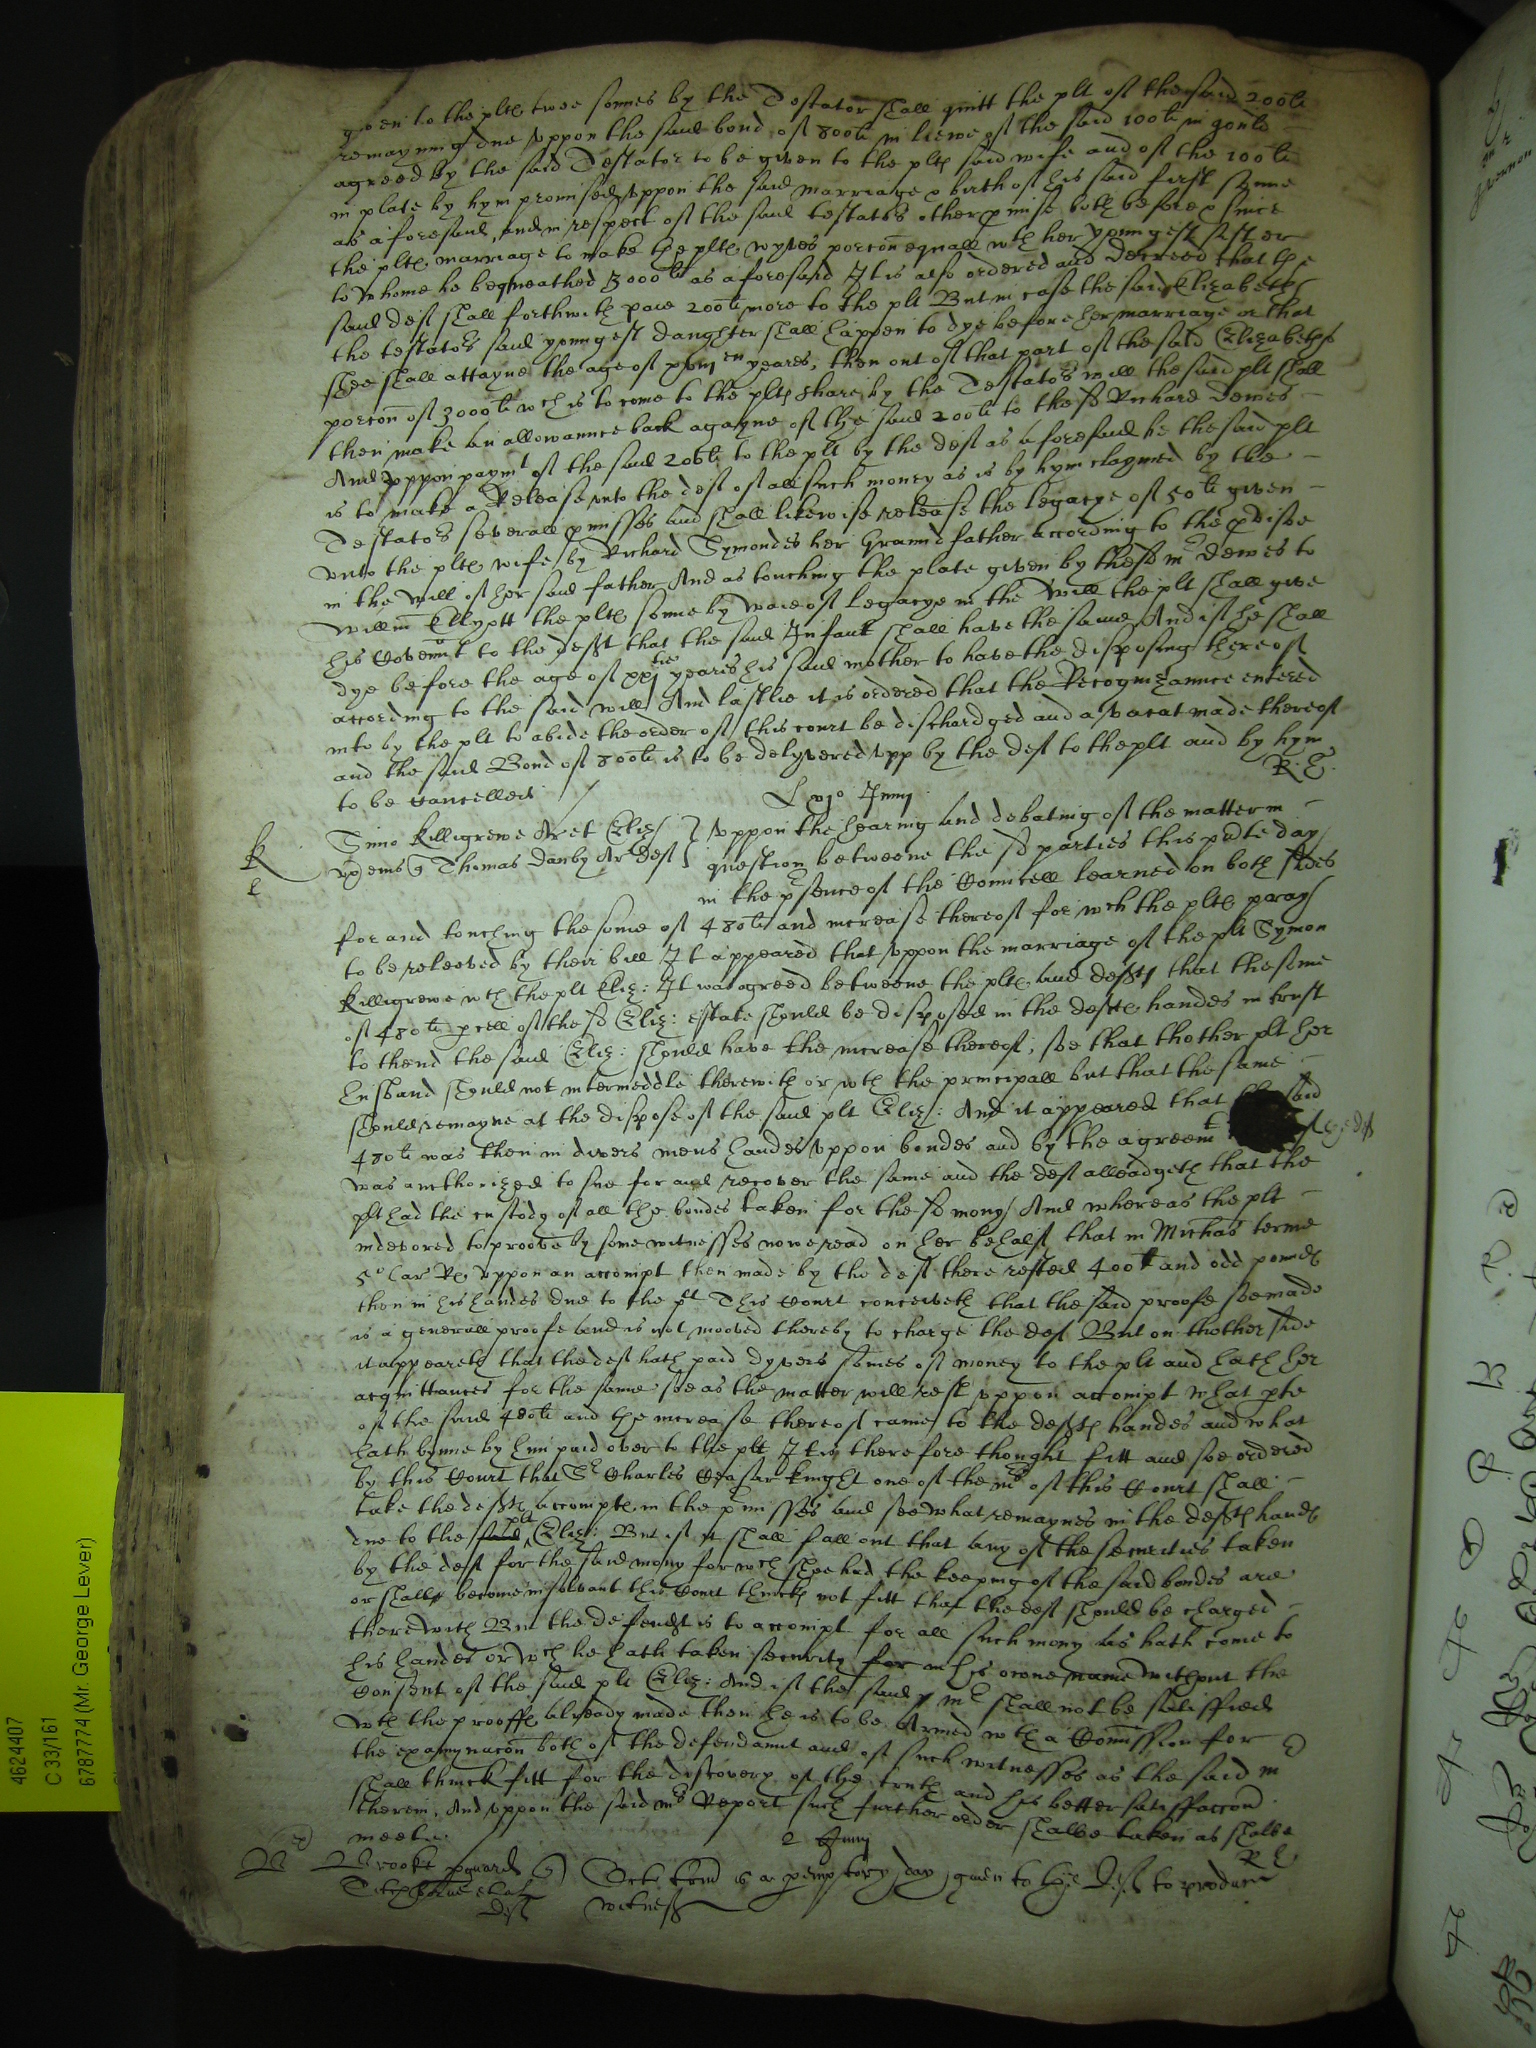 given to the plts twoe sonnes by the Testator shall quitt the plt of the said 200li
remayning due uppon the said bond of 800li in liewe of the said 100li in gould
agreed by the said Testator to be given to the plts said wife and of the 100li
in plate by hym promised uppon the said marriage & birth of his said first sonne
as aforesaid, and in respect of the said testators other pmise both before & since
the plts marriage to make the plts wyves porcon equall wth her youngest sister
to whome he bequeathed 3000li as aforesaid It is also ordered and decreed that the
said deft shall forthwith paie 200li more to the plt But in case the said Elizabeth
the testators said youngest daughter shall happen to dye before her marriage or that
shee shall attayne the age of xviijen yeares, then out of that part of the said Elizabeths
porcon of 3000li wch is to come to the plts share by the Testators will the said plt shall
then make an allowannce back agayne of the said 200li to the sd Richard Dewes
And uppon paymt of the said 200li to the plt by the deft as aforesaid he the said plt
is to make a Release unto the deft of all such money as is by hym claymed by the
Testators severall pmisses and shall likewise release the legacye of 50li given
unto the plts wife by Richard Symondes her Grannd father according to the pvisoe
in the will of her said father And as touching the plate given by the sd mr Dewes to
Willm Ellyott the plts sonne by waie of legacye in the will the plt shall give
his Covennt to the deft that the said Infant shall have the same And if he shall
dye before the age of xxjtie yeares his said mother to have the disposing thereof
according to the said will And lastlie it is ordered that the Recognizannce entered
into by the plt to abide the order of this court be dischardged and a vacat made thereof
and the said Bond of 800li is to be delyvered upp by the deft to the plt and by hym
to be cancelled
R: E:
L vjo Junij
K Simo Killigrewe Ar et Eliz Uppon the hearing and debating of the matter in
ux eius qr Thomas Danby Ar deft question betweene the sd parties this pnte day
in the psence of the Councell learned on both sides
for and touching the some of 480li and increase thereof for wch the plts pray
to be releeved by their bill It appeared that uppon the marriage of the plt Symon
Killigrewe wth the plt Eliz: It was agreed betweene the plts and deft that the some
of 480li pcell of the sd Eliz: estate should be disposed in the defts handes in trust
to thend the said Eliz: should have the increase thereof, soe that thother plt her
husband should not intermeddle therewith or wth the principall but that the same
should remayne at the dispose of the said plt Eliz: And it appeared that the said
480li was then in divers mens handes uppon bondes and by the agreemt the deft
was authorized to sue for and recover the same and the deft alleadgeth that the
plt had the custody of all the bondes taken for the sd mony And whereas the plt
indevored to proove by some witnesses nowe read on her behalf that in Michas terme
5o Car Rs uppon an accompt then made by the deft there rested 400li and odd powndes
then in his handes due to the plt This Court conceiveth that the said proofe soe made
is a generall proofe and is not mooved thereby to charge the deft But on thother side
it appeareth that the deft hath paid dyvers somes of money to the plt and hath her
acquittances for the same soe as the matter will rest uppon accompt what pte
of the said 480li and the increase thereof came to the defts handes and what
hath bynne by him paid over to the plt It is therefore thought fitt and soe ordered
by this Court that Sr Charles Ceasar knight one of the mrs of this Court shall
take the defts accompts in the pmisses and see what remaynes in the defts handes
due to the said plt Eliz: But if it shall fall out that any of the securities taken
by the deft for the said mony for wch shee had the keeping of the said bondes are
or shalbe become insolvant this Court thincks not fitt that the deft should be charged
therewith But the defendt is to accompt for all such mony as hath come to
his handes or wch he hath taken security for in his owne name without the
consent of the said plt Eliz: And if the said mr shall not be satisfied
wth the prooffs already made then he is to be Armed wth a Comission for
the examynacon both of the defendannt and of such witnesses as the said mr
shall thinck fitt for the discovery of the truth and his better satisfaccon
therein, And uppon the said mrs Report such further order shalbe taken as shalbe
meete.
R E
2 Junij
B Brooke qr Octo Trin is a pemptory day given to the deft to produce
deft witness
4624407
C 33/161
6787774 (Mr. George Lever)